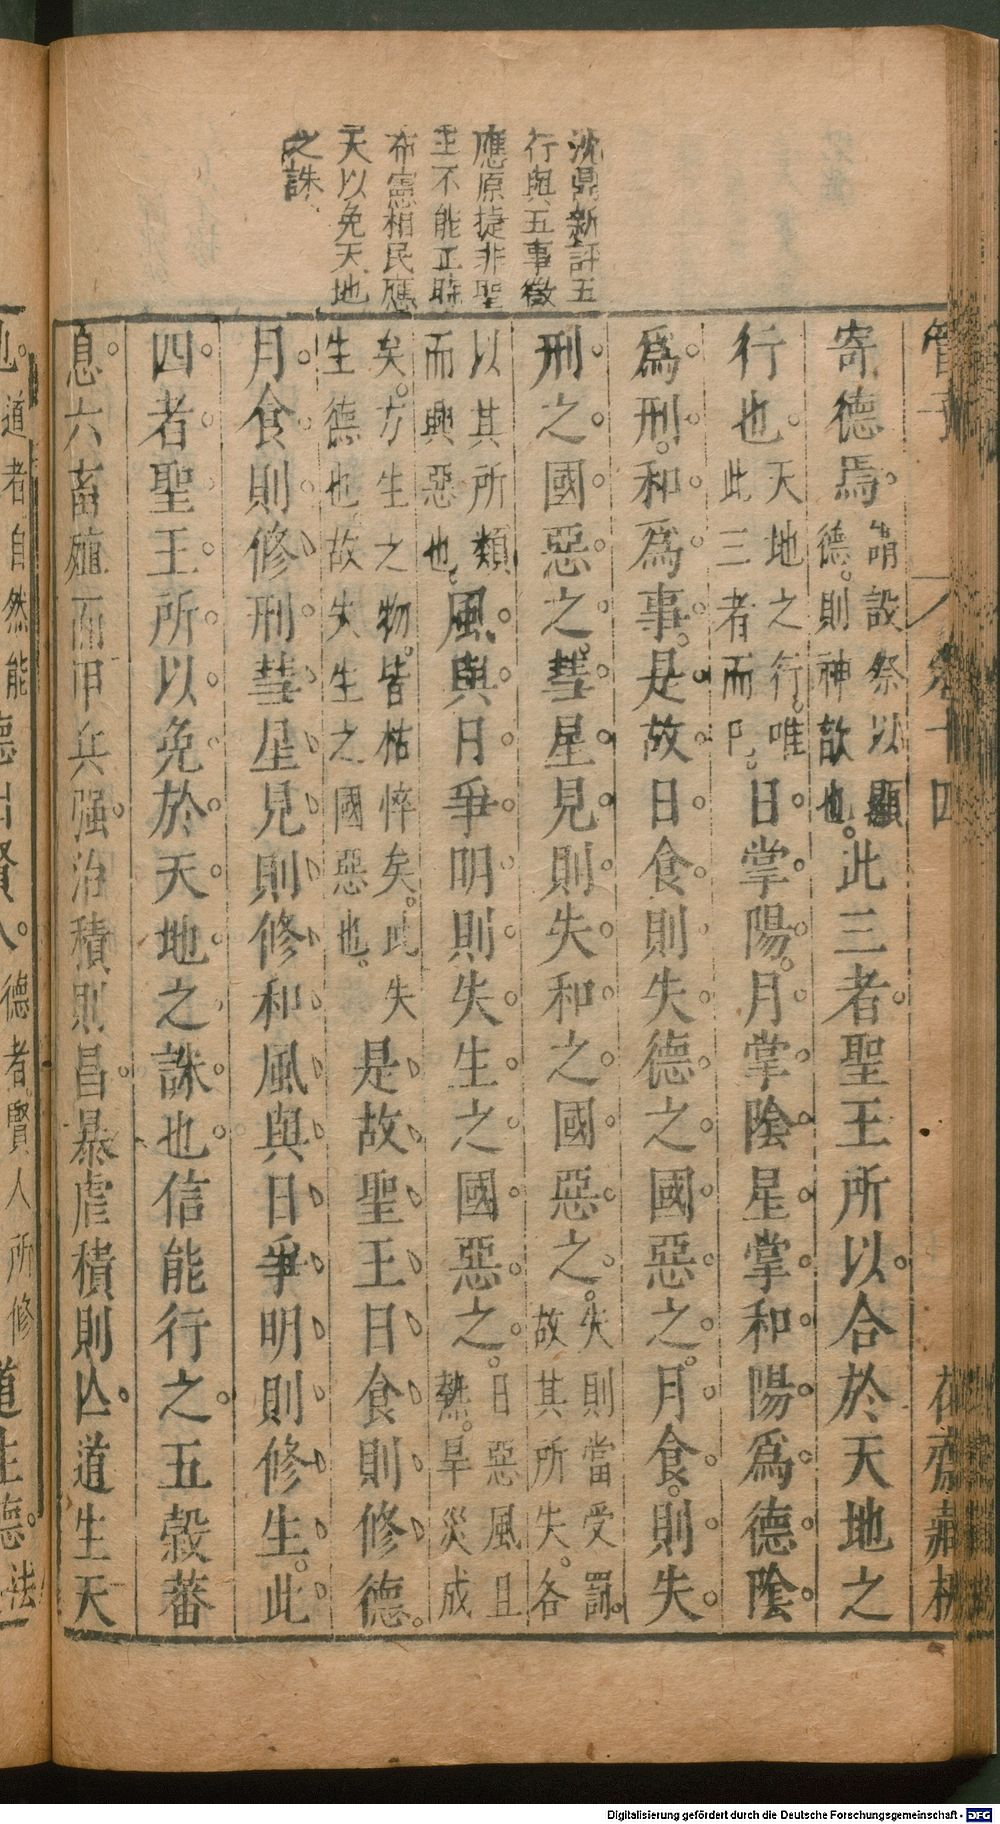 沈鼎新評五
行與五事徵
應原捷非聖
主不能正時
布憲相民應
天以免天地
之誅
管子 卷十四 花齋藏板
寄德焉。謂設祭以顯德。則神歆也。此三者聖王所以合於天地之
行也。天地之行。唯此三者而已。日掌陽。月掌陰星掌和陽為德陰
為刑。和為事。是故日食則失德之國惡之。月食。則失
刑之國惡之。彗星見則失和之國惡之。失則當受罰。故其所失。各
以其所類而興惡也。風與日爭明則失生之國惡之。日惡風且熱。旱災成
矣。方生之物。皆枯悴矣。此失生德也。故失生之國惡也。是故聖王日食則修德。
月食則修刑彗星見則修和風與日爭明則修生。此
四者聖王所以免於天地之誅也信能行之五穀蕃
息六畜殖而甲兵强。治積則昌暴虐積則亡道生天
也。道者自然能德出賢人。德者賢人所修道生德。法
Digitalisierung gefördert durch die Deutsche Forschungsgemeinschaft - DFG